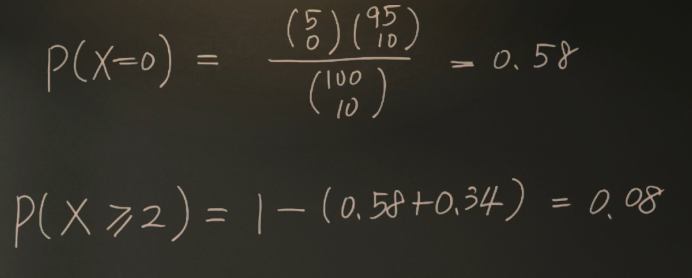 P(X=0) = \frac{\binom{5}{0}\binom{95}{10}}{\binom{100}{10}} = 0.58
P(X⩾2) = 1-(0.58+0.34) = 0.08